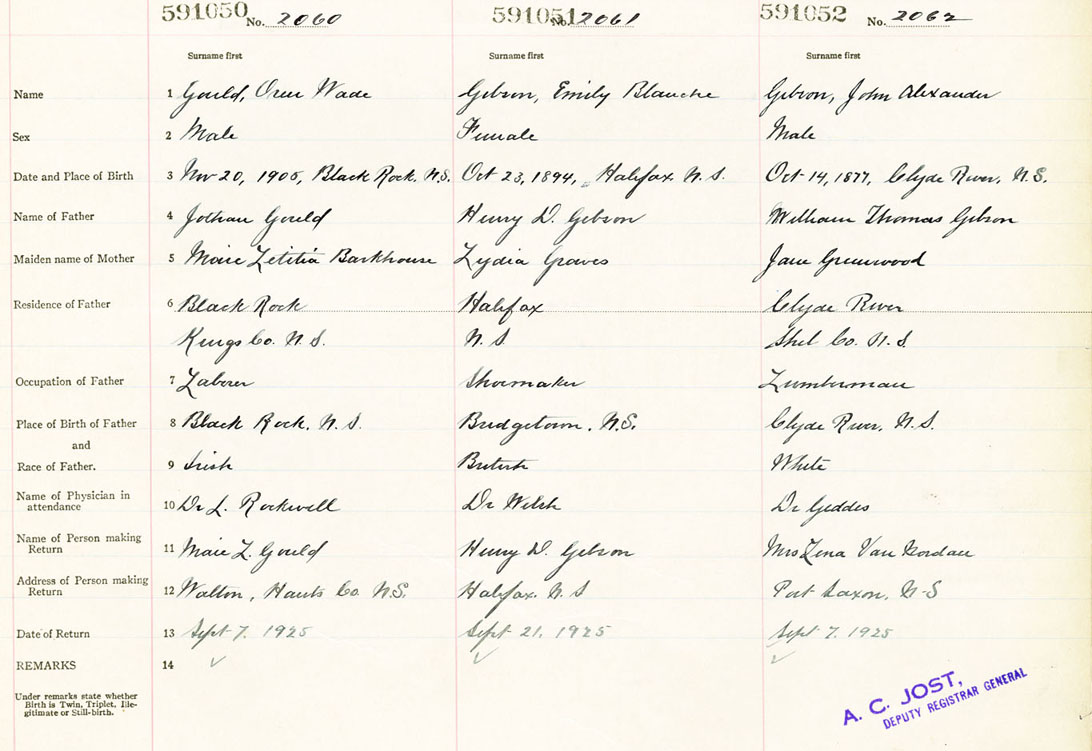 591050 No. 2060 591051 No. 2061 591052 No. 2062
Surname first Surname first Surname first
Name 1 Gould, Oren Wade Gibson, Emily Blanche Gibson, John Alexander
Sex 2 Male Female Male
Date and Place of Birth 3 Nov 20, 1905, Black Rock. N.S. Oct 23, 1894, Halifax. N.S. Oct 14, 1877, Clyde River, N.S.
Name of Father 4 Gould Henry D. Gibson William Thomas Gibson
Maiden name of Mother 5 Letitia Barkhouse Lydia Graves Jane Greenwood
Residence of Father 6 Black Rock Halifax Clyde River
Kings Co. N.S. N.S Shel Co. N.S
Occupation of Father 7 Laborer Shoemaker Lumberman
Place of Birth of Father 8 Black Rock. N.S. Bridgetown. N.S. Clyde River, N.S.
and
Race of Father. 9 Irish British White
Name of Physician in
attendance 10 Dr L. Rockwell Dr Welsh Dr Geddes
Name of Person making
Return 11 L. Gould Henry D. Gibson Mrs Van
Address of Person making
Return 12 Walton, Hants Co. N.S. Halifax. N.S Port Saxon, N-S
Date of Return 13 Sept 7. 1925 Sept 21, 1925 Sept 7. 1925
REMARKS 14
Under remarks state whether
Birth is Twin, Triplet, Ille-
gitimate or Still-birth.
A. C. JOST,
DEPUTY REGISTRAR GENERAL